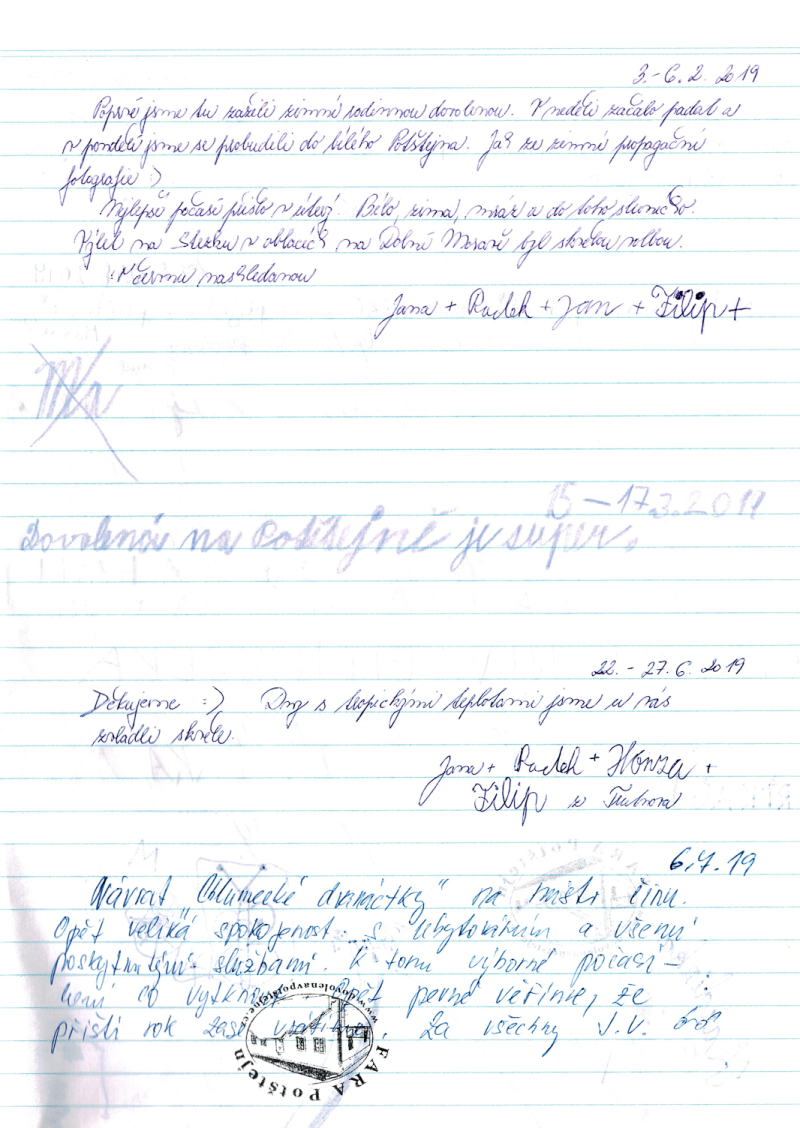 3.-6.2. 2019
Poprvé jsme tu zažili zimní rodinnou dovolenou. V neděli začalo padat a
v pondělí jsme se probudili do bílého Potštejna. Jak ze zimní propagační
fotografie :)
Nejlepší počasí přišlo v úterý. Bílo, zima, mráz a do toho sluníčko.
Výlet na Stezku v oblacích na Dolní Moravě byl skvělou volbou.
V červnu nashledanou
Jana + Radek + Jan + Filip +
15 - 17.3.2019
Dovolená na Potštejně je super.
22. - 27.6. 2019
Děkujeme :) Dny s tropickými teplotami jsme u vás
zvládli skvěle.
Jana + Radek + Honza +
Filip z
6.7.19
Návrat „Chlumecké dvanáctky" na místo činu.
Opět veliká spokojenost s ubytováním a všemi
poskytnutými službami. K tomu výborné počasí -
není co vytknout. Opět pevně věříme, že
příští rok zase vrátíme. Za všechny J.V.
www.dovolenavpotstejne.cz
FARA Potštejn